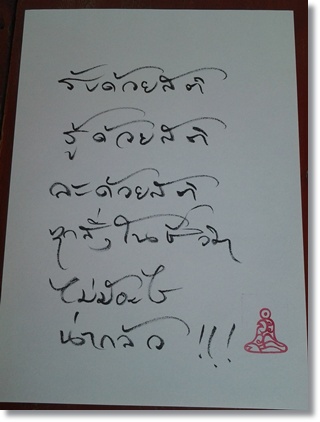 รับด้วยสติ
รู้ด้วยสติ
ละด้วยสติ
ทุกสิ่งในชีวิต
ไม่มีอะไร
น่ากลัว !!!